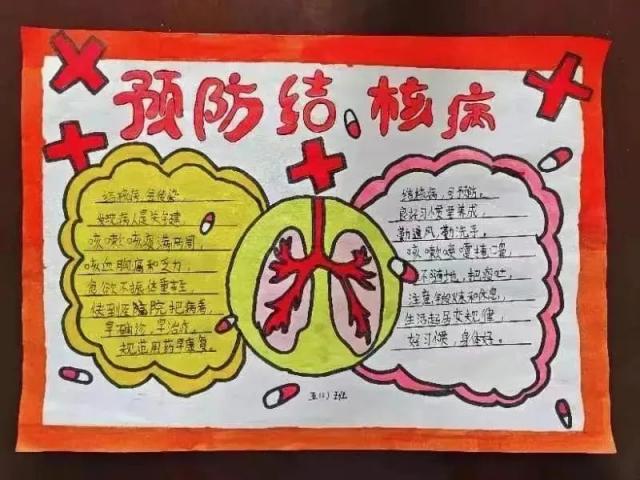 预防结核病
结核病,会传染,
发现病人是关键,
咳嗽咳痰满两周,
咳血胸痛和乏力,
食欲不振体重轻,
快到医院把病看,
早确诊,早治疗,
规范用药早康复。
结核病,可预防。
良好习惯要养成,
勤通风,勤洗手。
咳嗽喷嚏捂口
不随地 把痰吐,
注意 和休息,
生活起居要规律,
好习惯,身体好。
五(1)班